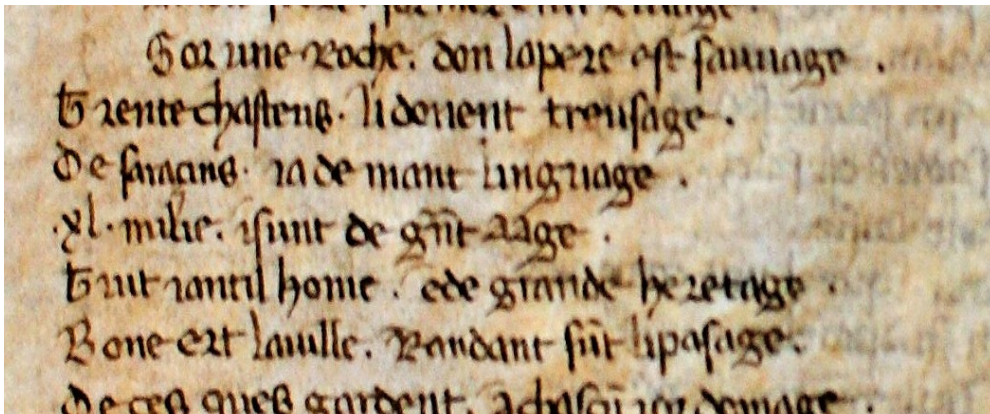 Sor une roche. don lapere est sauuage .
Trente chastens. li donent treusage .
De saraçins. ia de mant linguage .
.xl. milie. isunt de gñt aage .
Tuit iantil home. ede grande heretage .
Bone ert lauille. Rendant sũt lipasage.
De ces ques gardent. achascũ ior domage